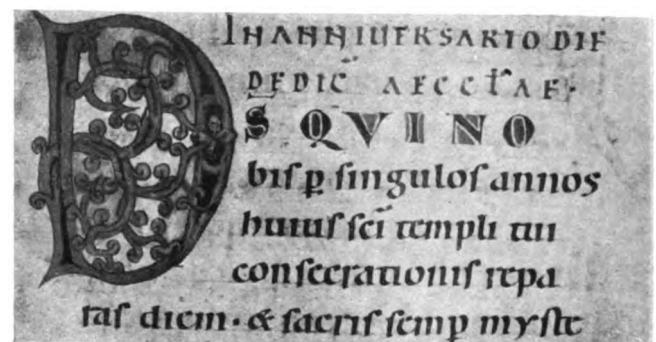 IN ANNIUERSARIO DIE
DEDIC̄ AECCL̄AE·
DS̄ QVI NO
bis ꝑ singulos annos
huius sc̄i templi tui
consecrationis repa
ras diem· & sacris semꝑ myste